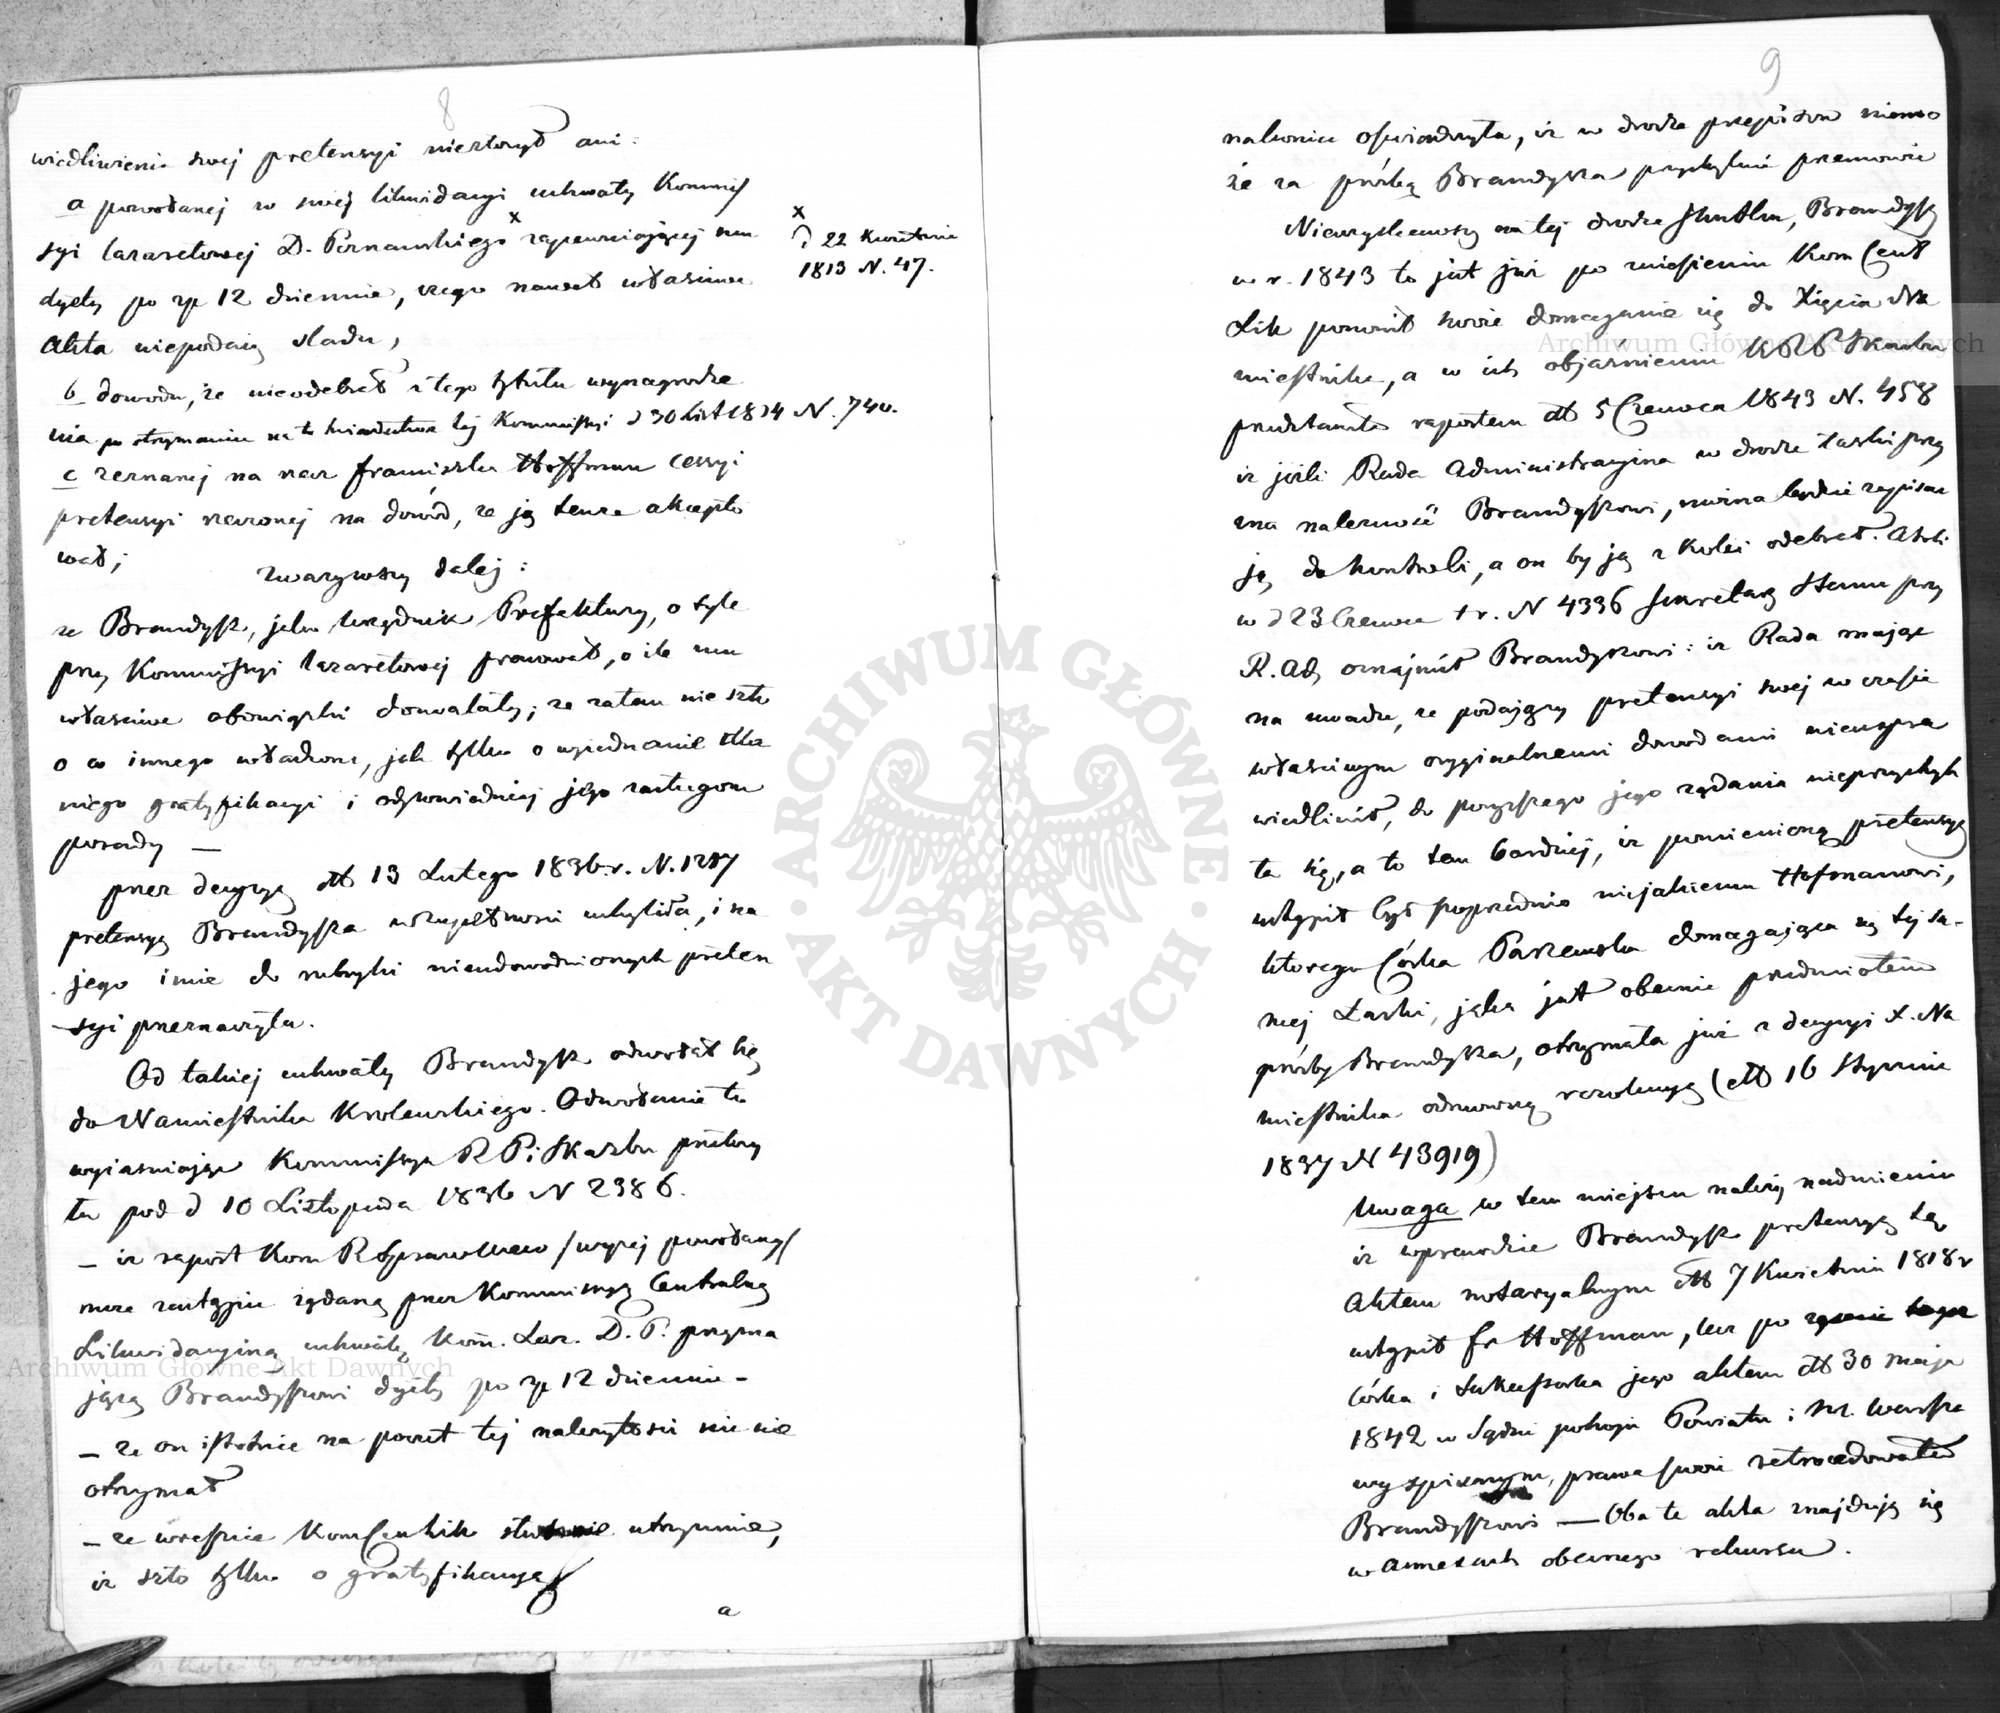 8
wiedliwienia swej pretensyi niezłożył ani:
a powołanej w swej likwidacyi uchwały Kommis
syi lazaretowej D. Poznańskiego x zapewniającej mu
dyety po zp 12 dziennie, czego nawet właściwe
Akta niepodają śladu,
x
d 22 Kwietnia
1813 N. 47.
b dowodu, że nieodebrał z tego tytułu wynagrodze
nia po otrzymaniu na to świadectwa tej Kommissyi d 30 List 1814 N. 740.
c zeznanej na rzecz Franciszka Hoffman cessyi
pretensyi rzeczonej na dowód, że ją tenże akcepto
wał;
zważywszy dalej:
że Brandysz, jako urzędnik Prefektury, o tyle
przy Kommissyi lazaretowej pracował, o ile mu
właściwe obowiązki dozwalały; że zatem nie szło
o co innego władzom, jak tylko o wyjednanie dla
niego gratyfikacyi i odpowiedniej jego zasługom
posady —
przez decyzyą dtt 13 Lutego 1836 r. N. 1287
pretensyą Brandysza w zupełności uchyliła, i na
jego imie do rubryki nieudowodnionych preten
syi przeznaczyła.
Od takiej uchwały Brandysz odwołał się
do Namiestnika Królewskiego. Odwołanie to
wyjaśniając Kommissya R P i Skarbu przełoży
ła pod d 10 Listopada 1836 N 2386.
— iż raport Kom R Sprawiedliw /wyżej powołany/
może zastąpić żądaną przez Kommissyą Centralną
Likwidacyjną uchwałę Kom. Laz. D. P. przyzna
jącą Brandyszowi dyety po zp 12 dziennie —
— że on istotnie na poczet tej należytości nic nie
otrzymał
— że wreszcie Kom Cent Lik utrzymuje,
iż szło tylko o gratyfikacyą
a
9
nakoniec oświadczyła, iż w drodze przepisów niemo
że za prośbą Brandysza przychylnie przemówić
Nieuzyskawszy na tej drodze skutku, Brandysz
w r. 1843 to jest już po zniesieniu Kom Cent
Lik ponowił swoje domaganie się do Xięcia Na
miestnika, a w ich objaśnieniu K R P Skarbu
przedstawiła raportem dtt 5 Czerwca 1843 N. 458
iż jeżli Rada Administracyjna w drodze łaski przy
zna należność Brandyszowi, można będzie zapisać
ją do kontroli, a on by ją z kolei odebrał. A
w d 23 Czerwca t r. N 4336 Sekretarz Stanu przy
R. Ad. oznajmił Brandyszowi: iż Rada mając
na uwadze, że podający pretensyi swej w czasie
właściwym oryginalnemi dowodami nieuspra
wiedliwił, do powyższego jego żądania nieprzychyli
ła się, a to tem bardziej, iż pomienioną pretensyą
ustąpił był poprzednio niejakiemu Hofmanowi,
którego Córka Paszewska domagająca się tej sa-
mej Łaski, jaka jest obecnie przedmiotem
prośby Brandysza, otrzymała już z decyzyi X. Na
miestnika odmowną rezolucyą (dtt 16 Stycznia
1837 N 43919)
Uwaga w tem miejscu należy nadmienić
iż wprawdzie Brandysz pretensyą tę
Aktem notaryalnym dtt 7 Kwietnia 1818 r
ustąpił Fr Hoffman, lecz po
córka i Sukcessorka jego aktem dtt 30 maja
1842 w Sądzie pokoju Powiatu i M. Warsza
wy spisanym, prawa swoie retrocedowała
Brandyszowi — Oba te akta znajdują się
w annexach obecnego rekursu.